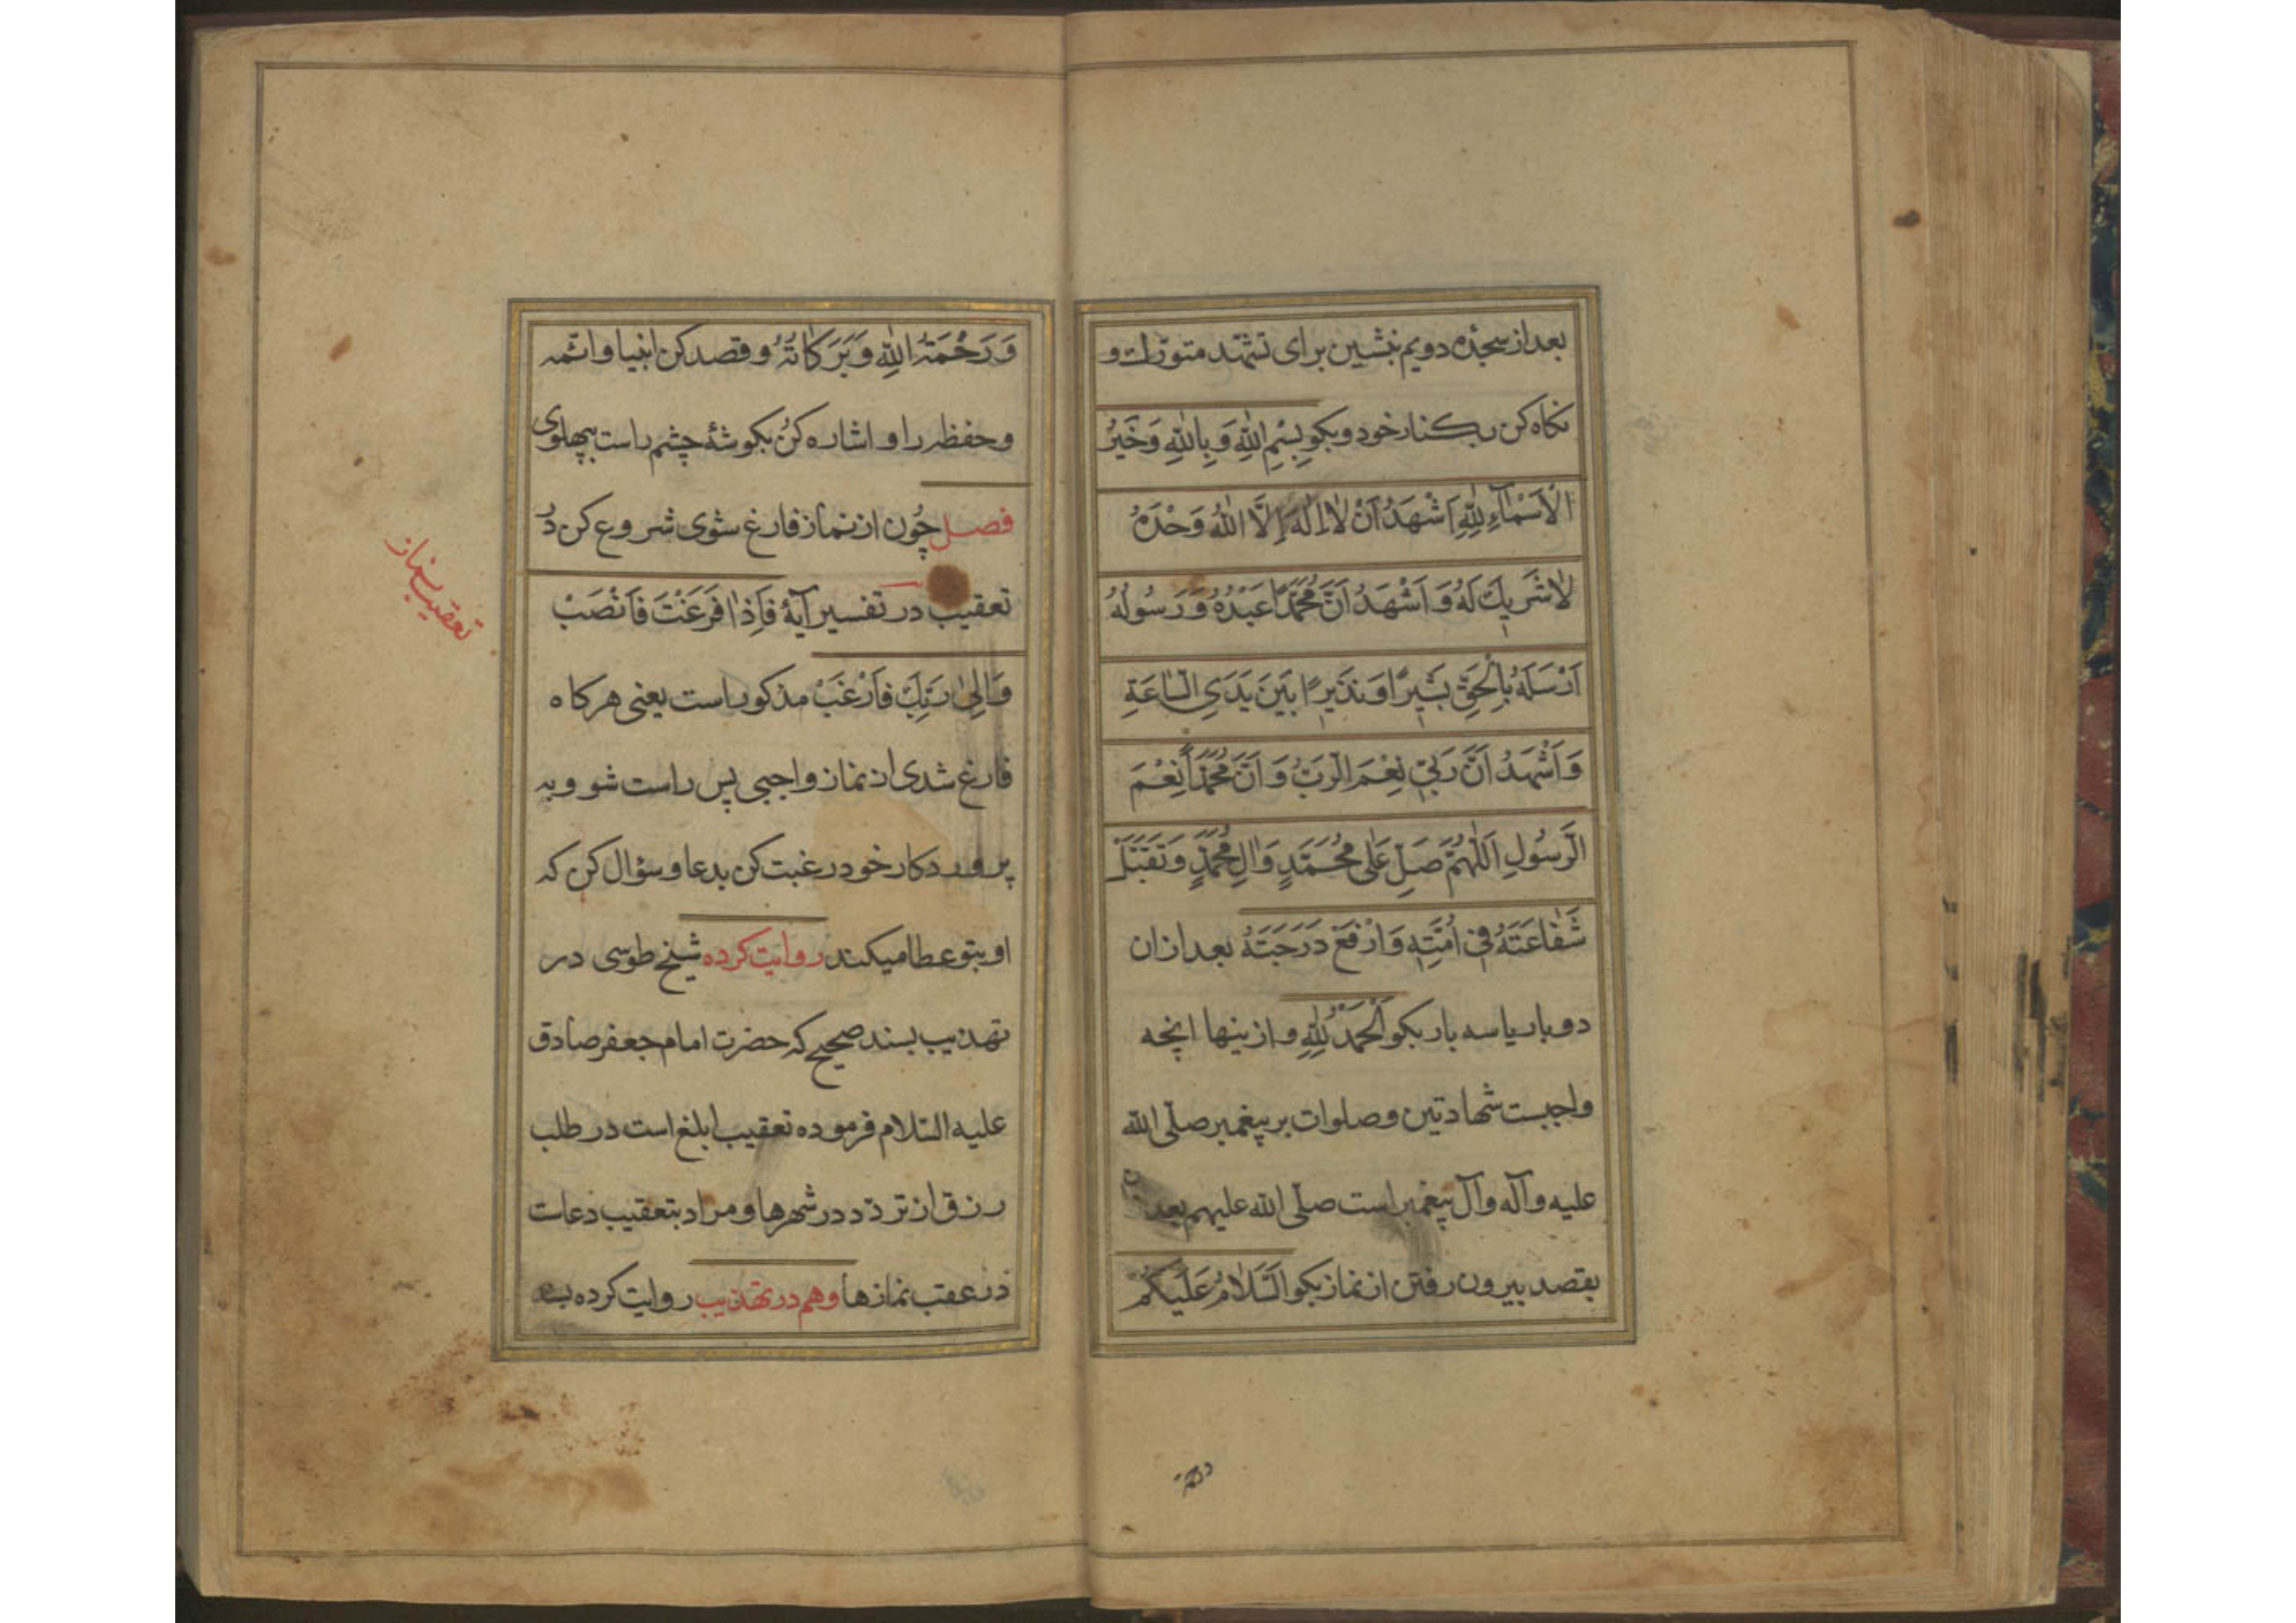 بعد از سجدهٔ دویم بنشین برای تشهّد متورّك و
نکاه کن بکنار خود و بکو بِسْمِ اللّٰهِ وَ بِاللّٰهِ وَ خَیْرُ
الْاَسْمآءِ لِلّٰهِ اَشْهَدُ اَنْ لٰا اِلٰهَ اِلَّا اللّٰهُ وَحْدَهُ
لٰا شَریكَ لَهُ وَ اَشْهَدُ اَنَّ مُحَمَّدًا عَبْدُهُ وَ رَسُولُهُ
اَرْسَلَهُ بِالْحَقِّ بَشیرًا وَ نَذیرًا بَیْنَ یَدَیِ السّٰاعَةِ
وَ اَشْهَدُ اَنَّ رَبّی نِعْمَ الرَّبُّ وَ اَنَّ مُحَمَّدًا نِعْمَ
الرَّسُولِ اَللّٰهُمَّ صَلِّ عَلٰی مُحَمَّدٍ وَ اٰلِ مُحَمَّدٍ وَ تَقَبَّلْ
شَفٰاعَتَهُ فی اُمَّتِهِ وَ ارْفَعْ دَرَجَتَهُ بعد ازان
دو بار یا سه بار بکو اَلْحَمْدُ لِلّٰهِ و ازینها انچه
واجبست شهادتین و صلوات بر پیغمبر صلّی اللّه
علیه و آله و آل پیغمبر است صلّی اللّه علیهم بعد
بقصد بیرون رفتن از نماز بکو اَلسَّلٰامُ عَلَیْکُمْ
وَ رَحْمَةُ اللّٰهِ وَ بَرَکٰاتُهُ و قصد کن انبیا و ائمّه
و حفظه را و اشاره کن بکوشهٔ چشم راست بپهلوی
فصل چون از نماز فارغ شوی شروع کن در
تعقیب در تفسیر آیهٔ فَاِذٰا فَرَغْتَ فَانْصَبْ
وَ اِلیٰ رَبِّكَ فَارْغَبْ مذکور است یعنی هرکاه
فارغ شدی از نماز واجبی پس راست شو و به
پروردکار خود رغبت کن بدعا و سؤال کن که
او بتو عطا میکند روایت کرده شیخ طوسی در
تهذیب بسند صحیح که حضرت امام جعفر صادق
علیه السّلام فرموده تعقیب ابلغ است در طلب
رزق از تردّد در شهرها و مراد بتعقیب دعاست
در عقب نمازها و هم در تهذیب روایت کرده
تعقیب نماز